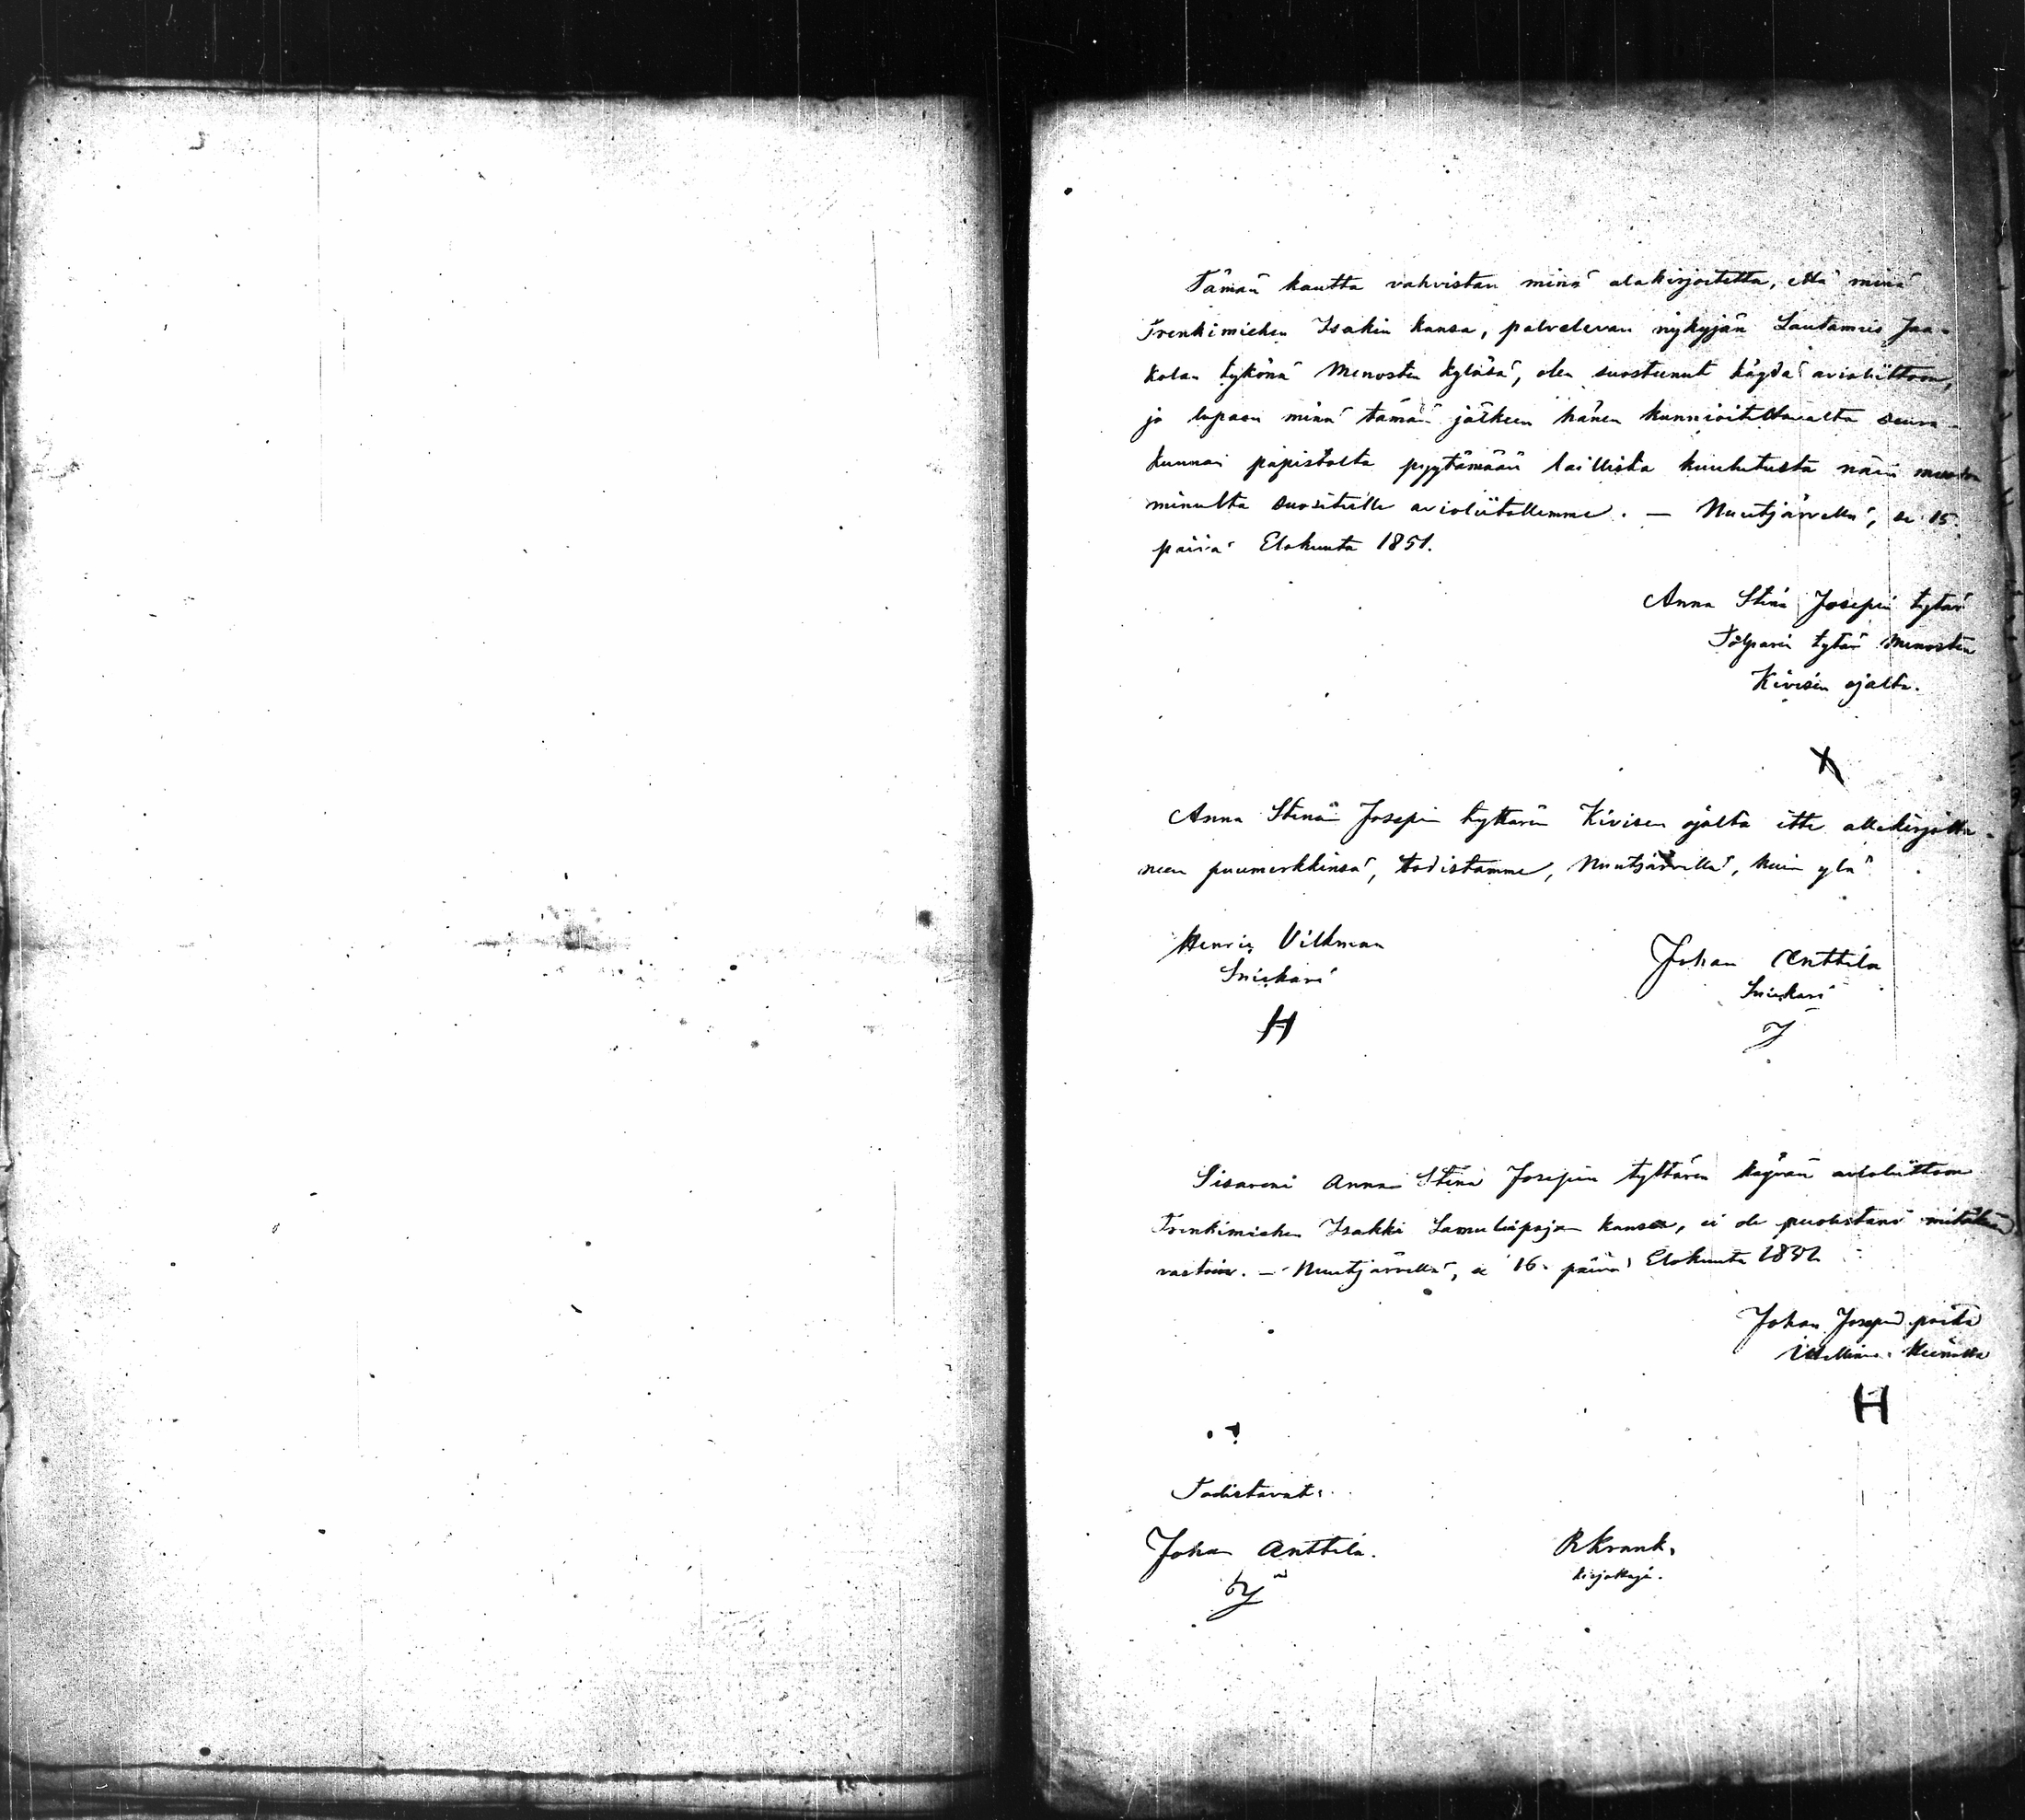 Tämän kautta vahvistan minä alakirjoitettu, että minä
Trenkimiehen Isakin kansa, palvelevan nykyjän Lautamies Jaa-
kolan tykönä Menosten kyläsä, olen suostunut käydä avioliittoon,
ja lupaan minä tämän jälkeen hänen kunnioitettavalta seura-
kunnan papistolta pyytämään laillista kuulutusta näin muodon
minulta suositulle avioliitollemme. — Nuutjärvellä, se 15.
päivä Elokuuta 1851.
Anna Stina Josepin tytär
Tölparin tytär Menosten
Kivisen ojalta.
X
Anna Stinan Josepin tyttären Kivisen ojalta itte allekirjotta-
neen puumerkkinsä, todistamme, Nuutjärvellä, kuin ylä
Henric Vilkman
Snickari
H
Johan Anttila
Snickari
J
Sisareni Anna Stina Josepin tyttären käyvän avioliittoon
Trenkimiehen Isakki kansa, ei ole puolestani mitäkän
vastoin. — Nuutjärvellä, se 16. päivä Elokuuta
Johan Josepin poika
H
Todistavat:
Johan Anttila.
RKrank,
kirjottaja.